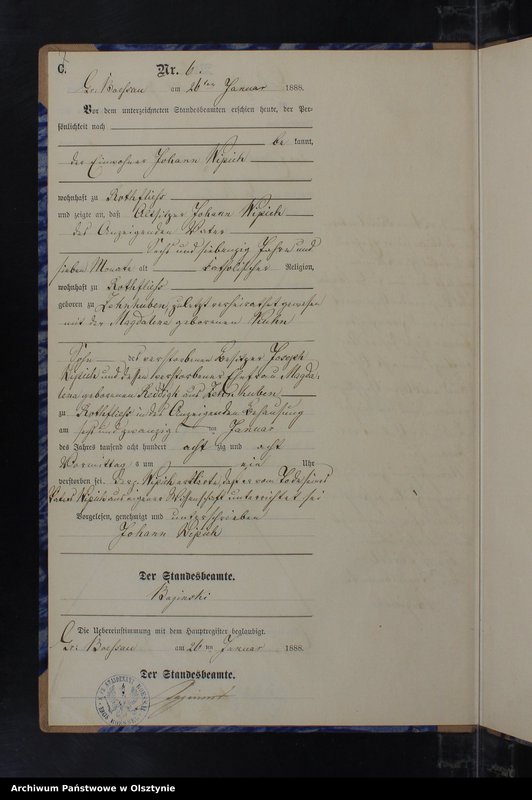 C.
Nr. 6.
Gr. Boessau am 26ten Januar 1888.
Vor dem unterzeichneten Standesbeamten erschien heute, der Per-
sönlichkeit nach
be kannt,
der Einwohner Johann Wipich
wohnhaft zu Rothfließ
und zeigte an, daß Altsitzer Johann Wipich
des Anzeigenden Vater
Sechs und siebenzig Jahre und
sieben Monate alt katholischer Religion,
wohnhaft zu Rothfließ
geboren zu Zehnhuben, zuletzt verheirathet gewesen
mit der Magdalena geborenen Kuhn
Sohn des verstorbenen Besitzer Joseph
Wipich und dessen verstorbener Ehefrau Magda-
lena geborenen aus Zehnhuben
zu Rothfließ in des Anzeigenden Behausung
am sechs und zwanzig ten Januar
des Jahres tausend acht hundert acht zig und acht
Vormittag s um ein Uhr
verstorben sei. Der p. Wipich erklärte, daß er vom Tode seines
Vaters Wipich aus eigener Wissenschaft unterrichtet sei
Vorgelesen, genehmigt und unterschrieben
Johann Wipich
Der Standesbeamte.
Baginski
Die Uebereinstimmung mit dem Hauptregister beglaubigt.
Gr. Boessau am 26ten Januar 1888.
Der Standesbeamte.
Archiwum Państwowe w Olsztynie